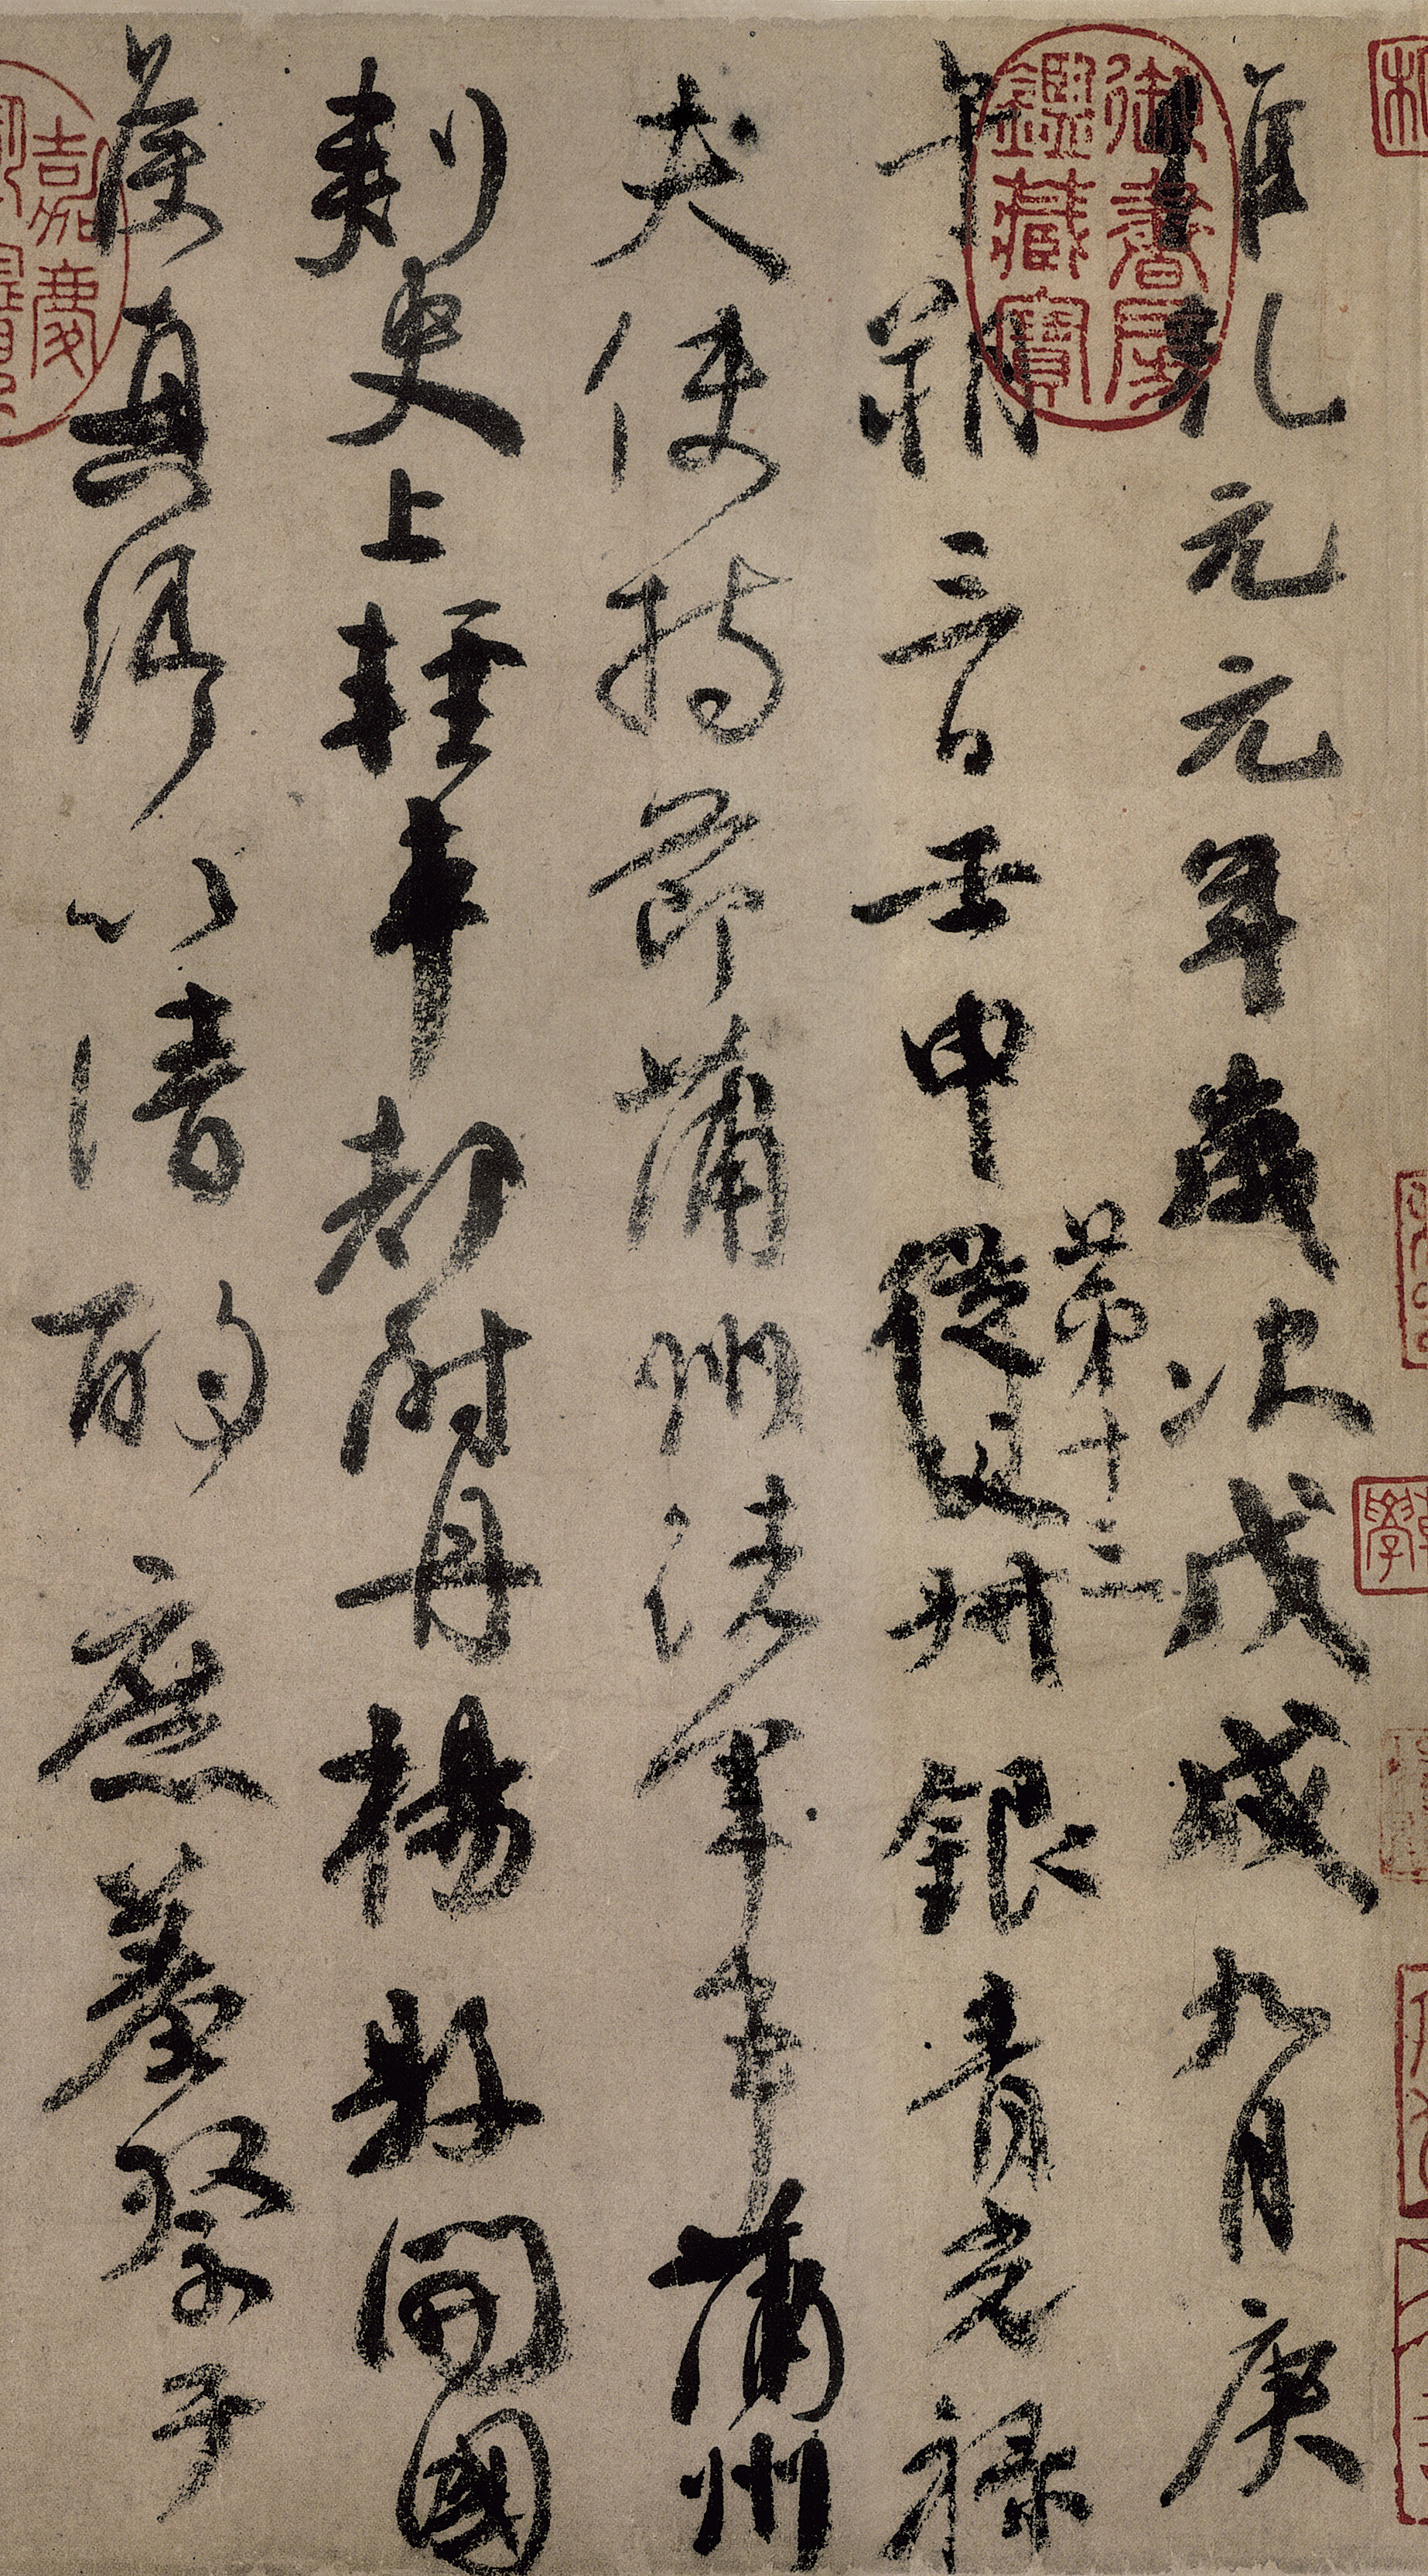 維乾元元年歲次戊戌九月庚
午朔三日壬申第十三從父姪銀青光祿
夫使持節蒲州諸軍事蒲州
刺史上輕車都尉丹楊縣開國
侯真卿以清酌庶羞祭于
御書房鑑藏寶
嘉慶